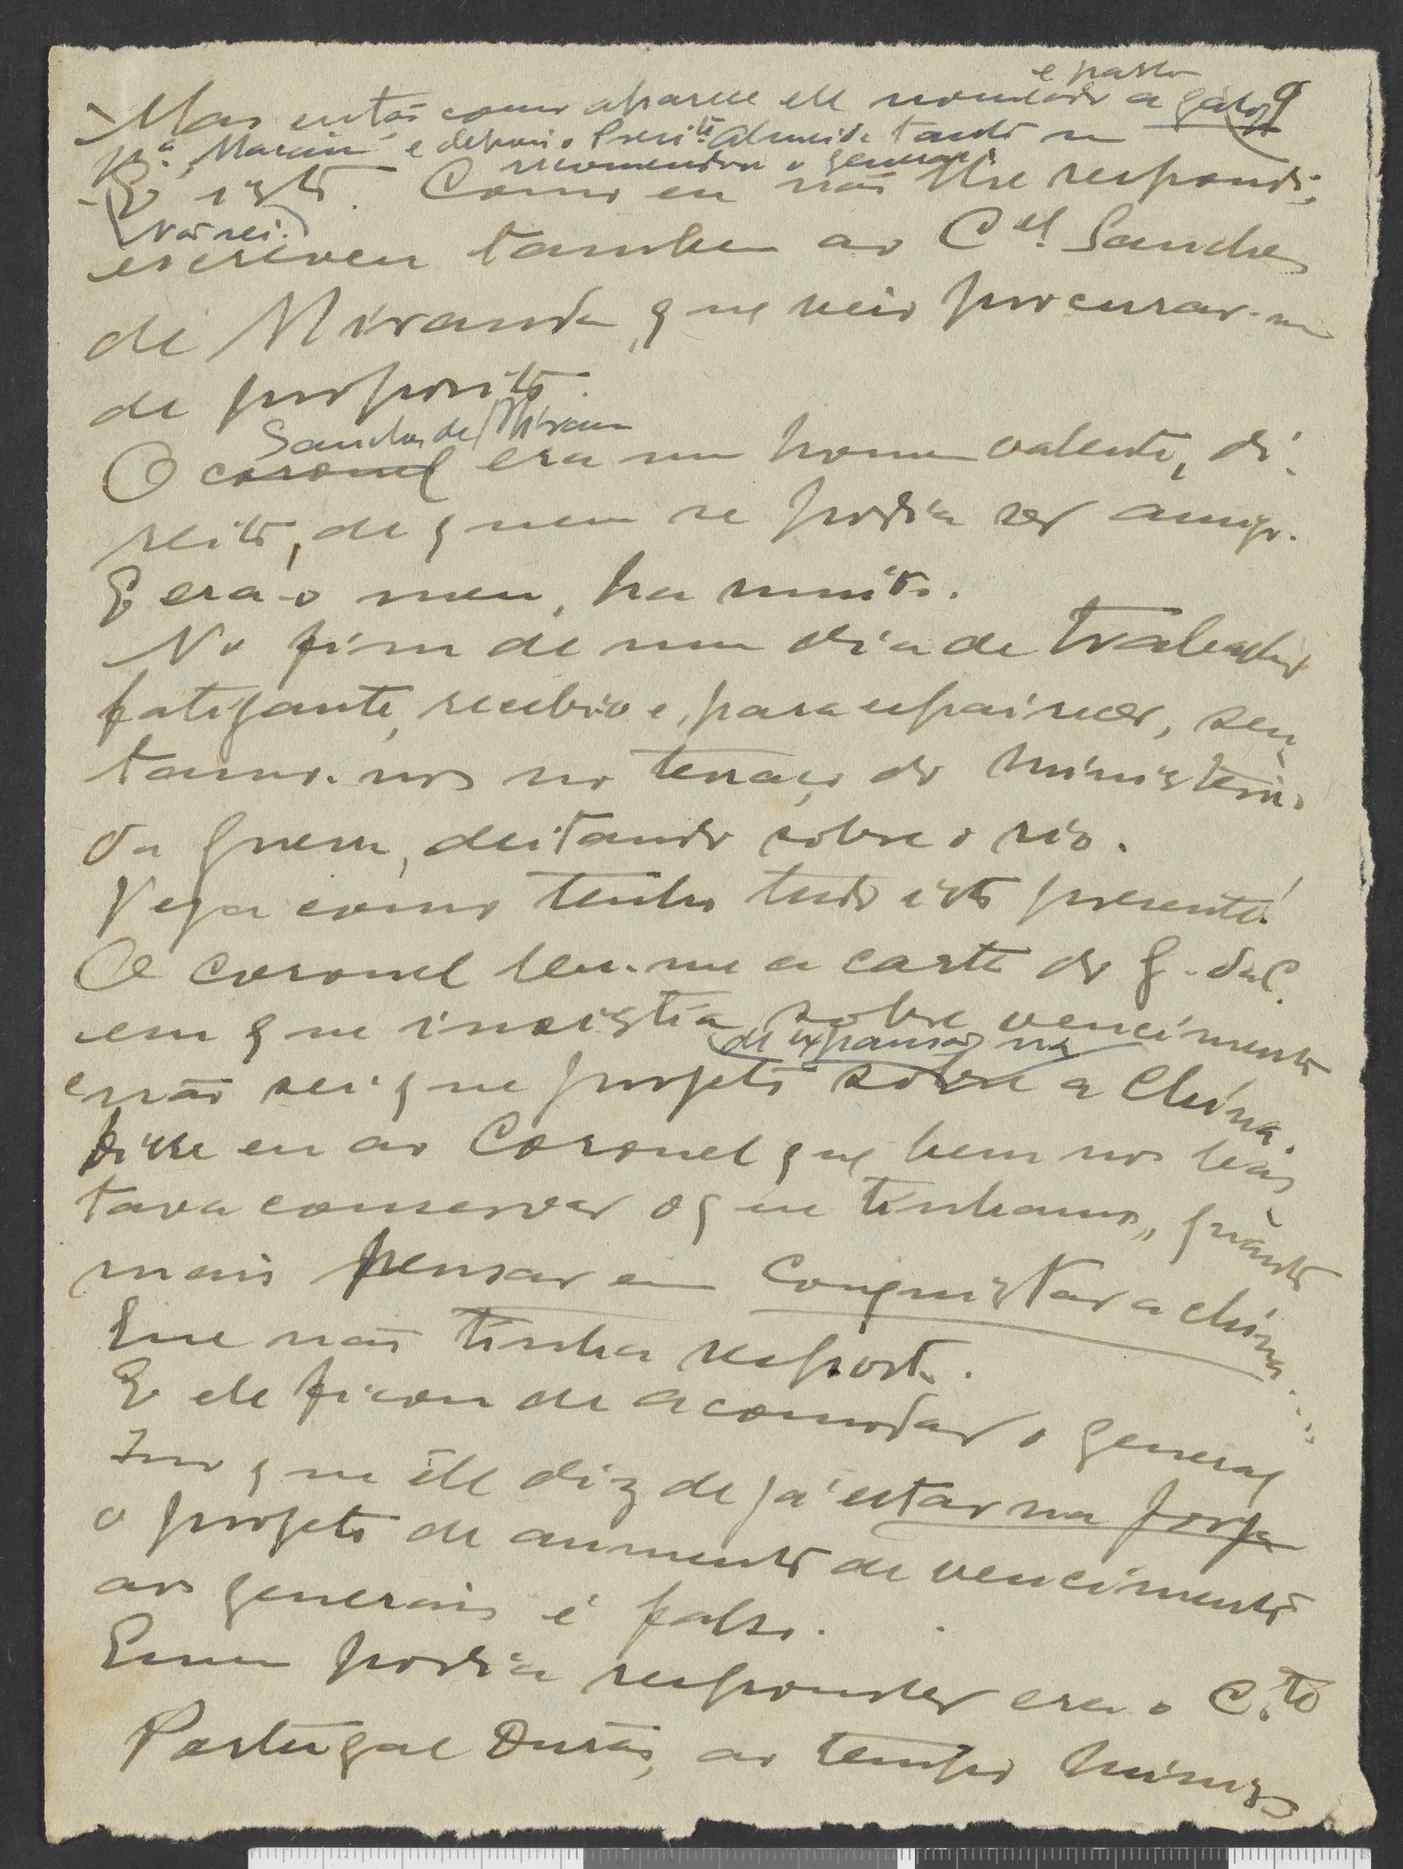 e parte
Mas então como aparece ele nomeado
e depois o Presi.te Almeida tanto me
recomendou o general
- E isto. Como eu não lhe respondi,
Não sei.
escreveu tambem ao C.el Sanches
de Miranda, que veio procurar-me
de proposito.
Sanches de Miran
O coronel era um homem valente, di-
reito, de quem se podia ser amigo.
E era-o meu, ha muito.
No fim de um dia de trabalho
fatigante, recebi-o e, para espairecer, sen
tamo-nos no terraço do Ministerio
da Guerra, deitando sobre o rio.
Veja como tenho tudo isto presente!
O coronel leu-me a carta do G. da C.
em que insistia sobre vencimento
de expansão na
e não sei que projeto sobre a China.
Disse eu ao Coronel que bem nos bas
tava conservar o que tinhamos, quanto
mais pensar em conquistar a China....
Que não tinha resposta.
E ele ficou de acomodar o general
Isso que ele diz de já estar na forja
o projeto de aumento de vencimento
aos generais é falso.
Quem podia responder era o C.to
Portugal Durão, ao tempo Minis